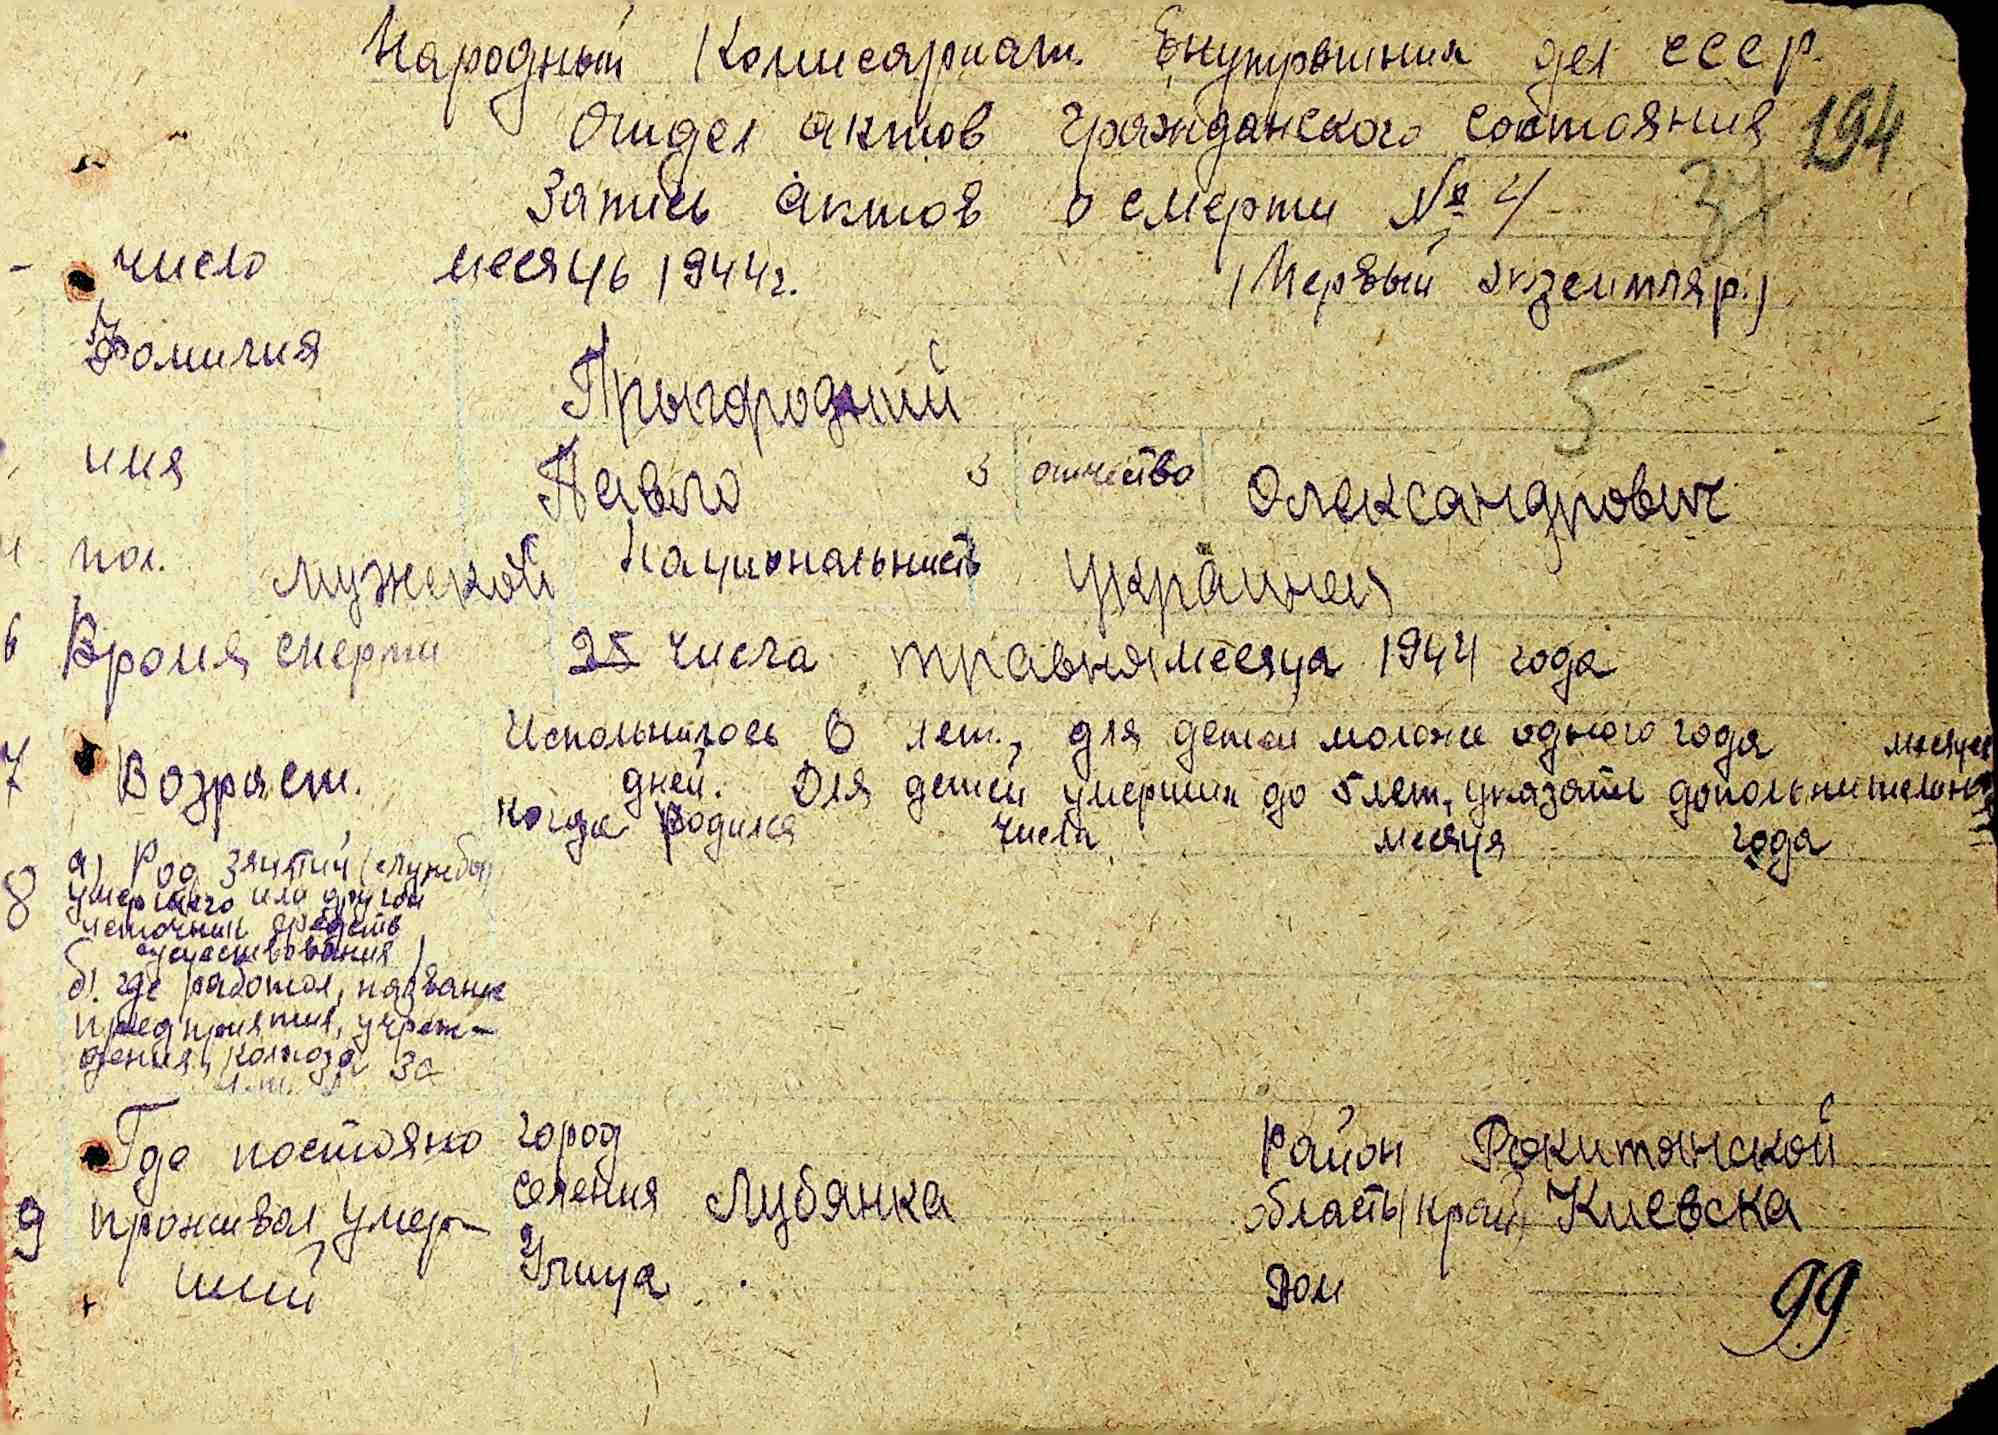 Народный Комисариат Внутрешних дел СССР.
Отдел актов Гражданского состояния 194
Запись актов о смерти № 4 37
число месяць 1944г. (Первый экземпляр.)
Фамилия Прыгородний 5
имя Павло 3 отчество Олександрович
пол. мужской Национальность украинец
6 Время смерти 25 числа травня месяца 1944 года
7 Возраст. Испольнилось 6 лет., для детей моложе одного года месяцев
дней. Для детей умерших до 5 лет, указать допольнительно
когда родился числа месяця года
8 а) Род занятий (службы
умершего или другой
источник средств
существования)
б). где работал, название
предприятия, учреж-
дения, колхоза за
Где постояно город Район Рокитянской
9 проживал умер- селения Лубянка область(край) Киевска
ший Улица . Дом 99